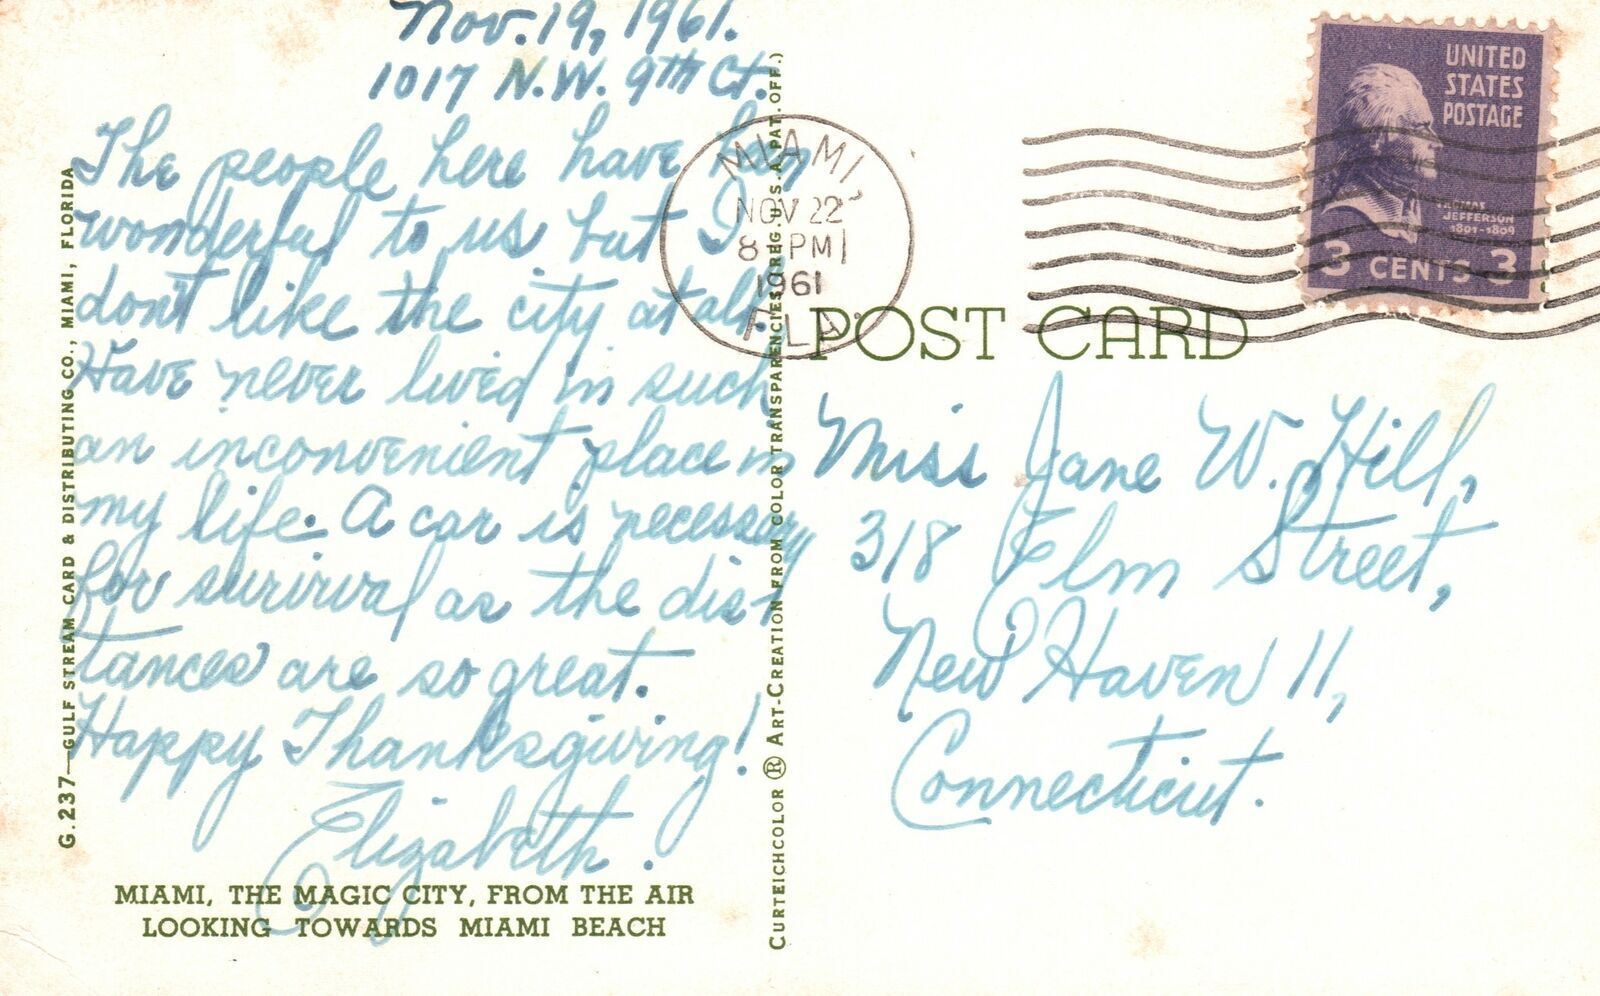 Nov. 19, 1961.
1017 N.W. 9th Ct.
The people here have been
wonderful to us but I
don't like the city at all.
Have never lived in such
an inconvenient place in
my life. A car is necessary
for survival as the dis-
tances are so great.
Happy Thanksgiving!
Elizabeth.
MIAMI, THE MAGIC CITY, FROM THE AIR
LOOKING TOWARDS MIAMI BEACH
G.237—GULF STREAM CARD & DISTRIBUTING CO., MIAMI, FLORIDA
CURTEICHCOLOR ® ART-CREATION FROM COLOR TRANSPARENCIES (REG. U.S.A. PAT. OFF.)
MIAMI,
NOV 22
8 - PM
1961
FLA
UNITED
STATES
POSTAGE
THOMAS
JEFFERSON
1801-1809
3 CENTS 3
POST CARD
Miss Jane W. Hill,
318 Elm Street,
New Haven 11,
Connecticut.